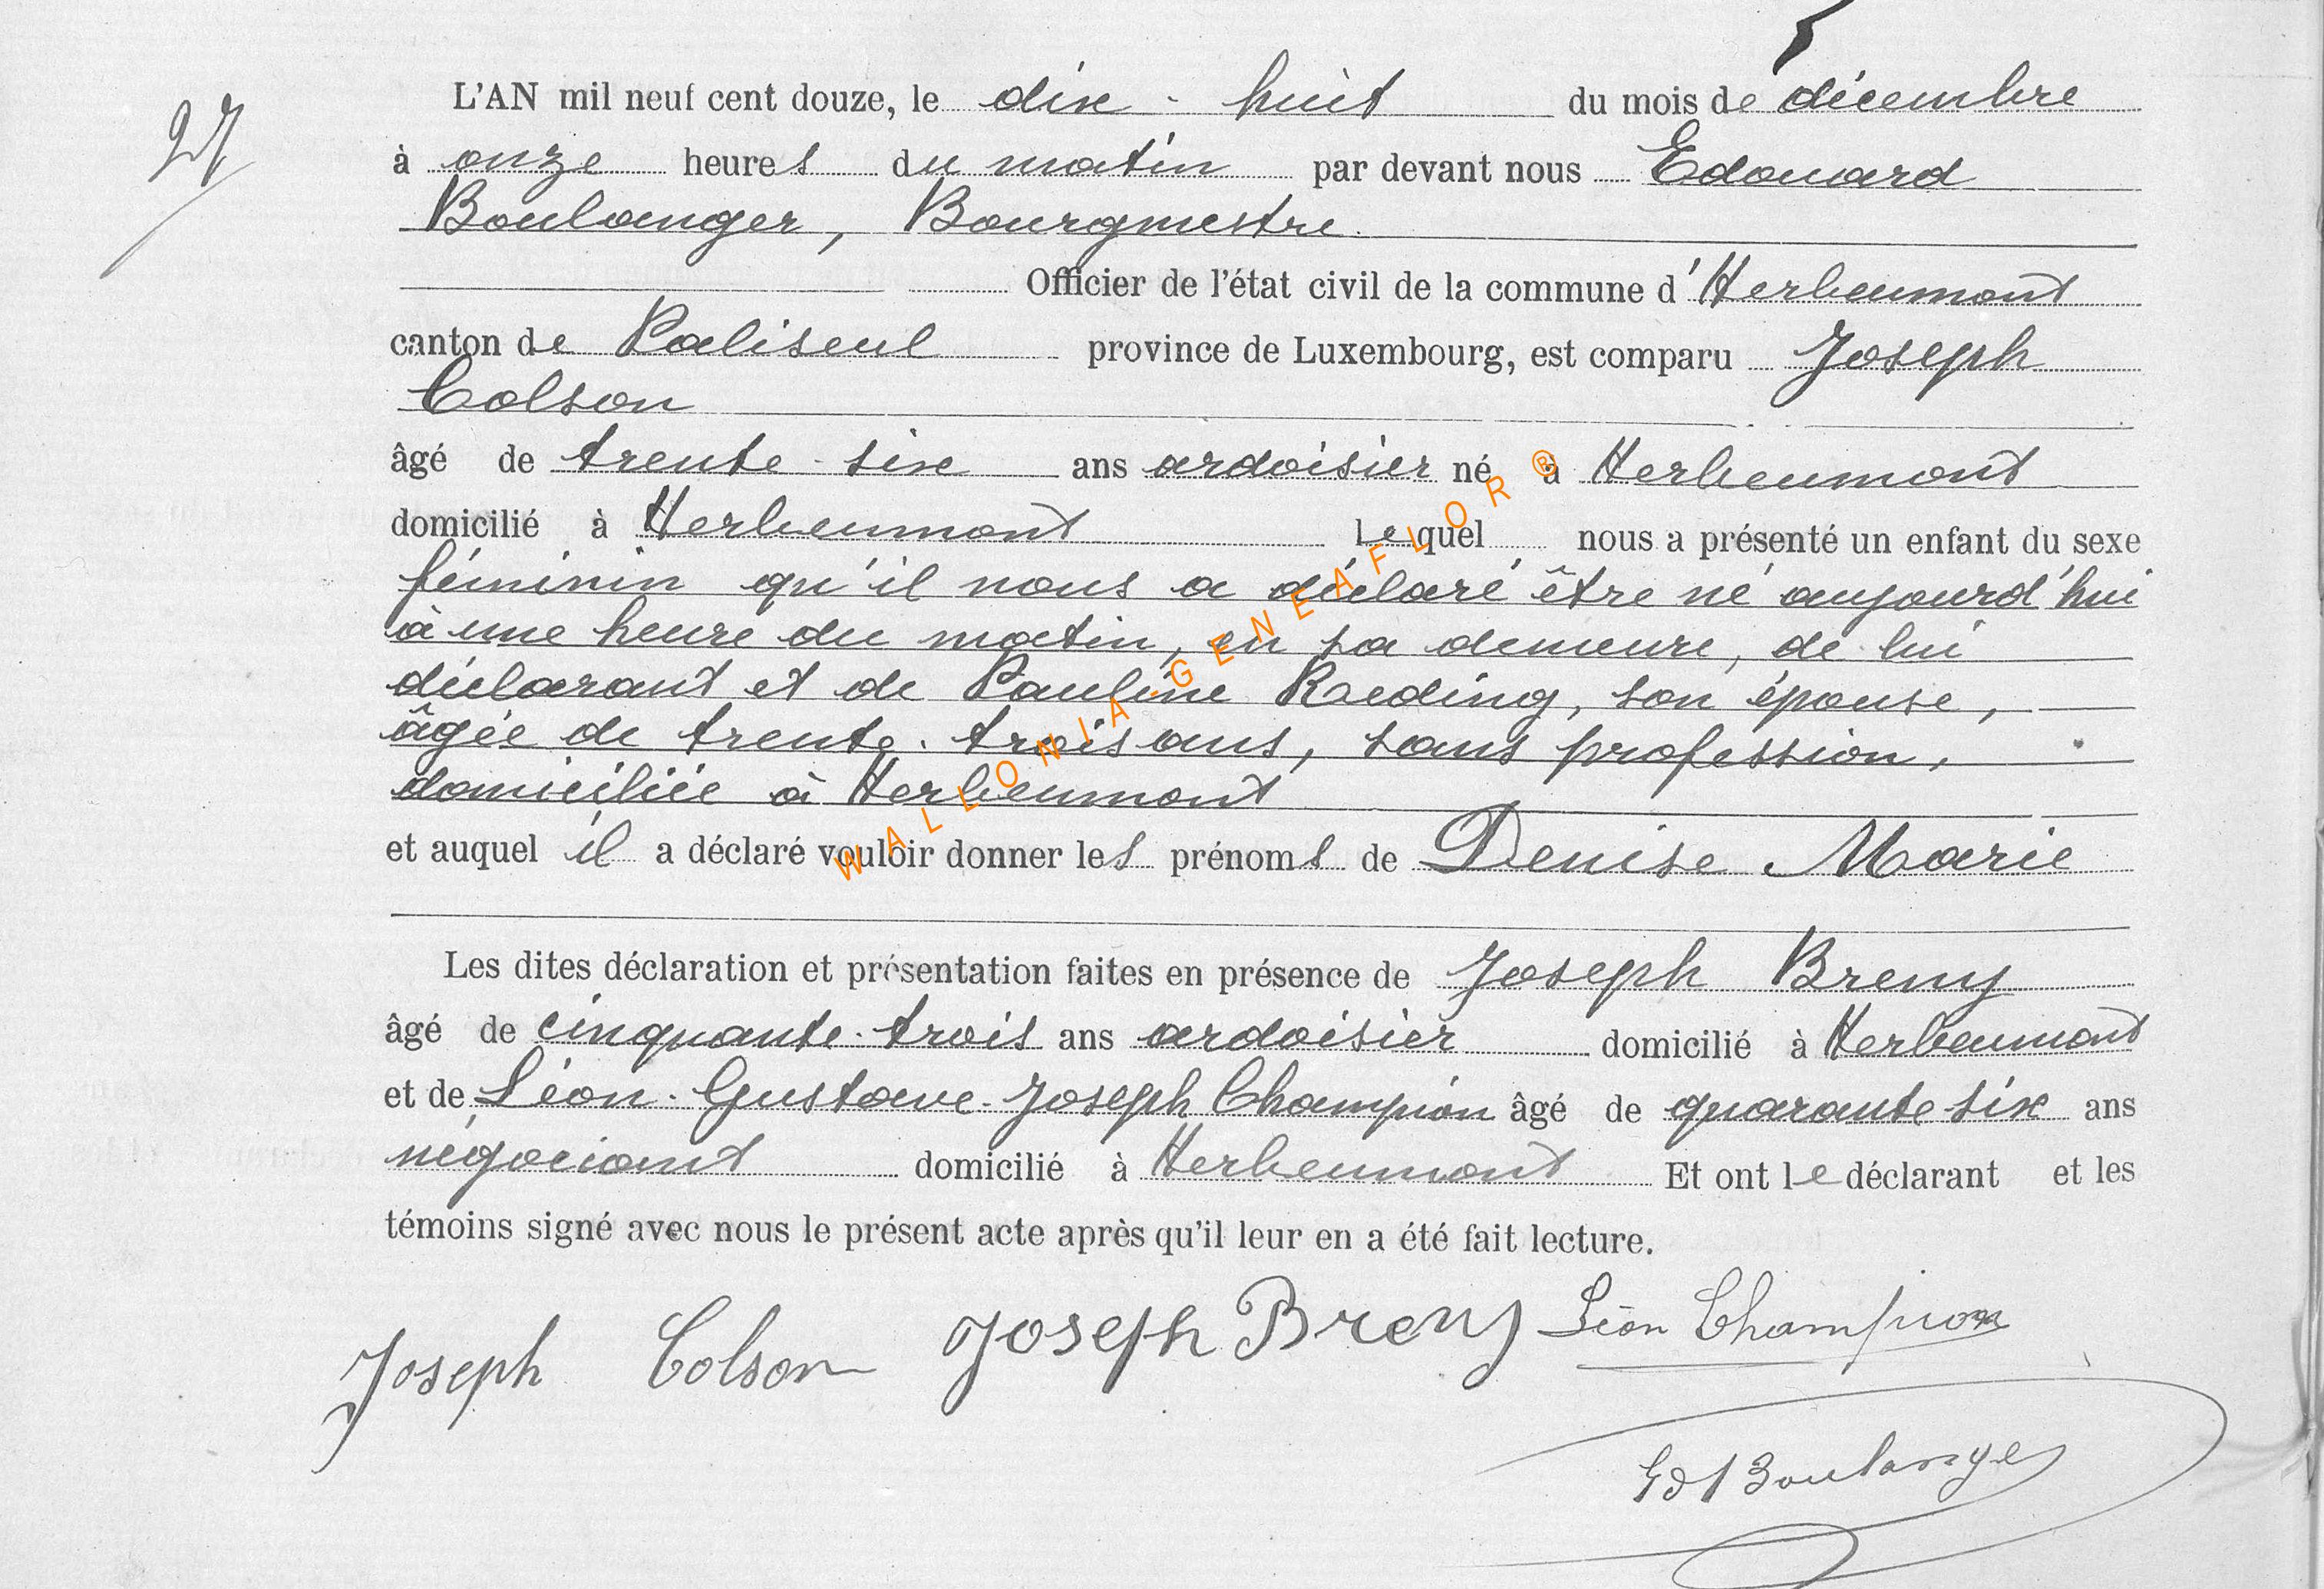 27
L'AN mil neuf cent douze, le dix-huit du mois de décembre
à onze heures du matin par devant nous Edouard
Boulanger, Bourgmestre.
Officier de l'état civil de la commune d'Herbeumont
canton de Paliseul province de Luxembourg, est comparu Joseph
Colson
âgé de trente-six ans ardoisier né à Herbeumont
domicilié à Herbeumont lequel nous a présenté un enfant du sexe
féminin qu'il nous a déclaré être né aujourd'hui
à une heure du matin, en sa demeure, de lui
déclarant et de Pauline Reding, son épouse,
âgée de trente-trois ans, sans profession,
domiciliée à Herbeumont
et auquel il a déclaré vouloir donner les prénoms de Denise Marie
Les dites déclaration et présentation faites en présence de Joseph Breny
âgé de cinquante-trois ans ardoisier domicilié à Herbeumont
et de Léon-Gustave-Joseph Champion âgé de quarante-six ans
négociant domicilié à Herbeumont Et ont le déclarant et les
témoins signé avec nous le présent acte après qu'il leur en a été fait lecture.
Joseph Colson Joseph Breny Léon Champion
Ed Boulanger
WALLONIA-GENEAFLOR ®